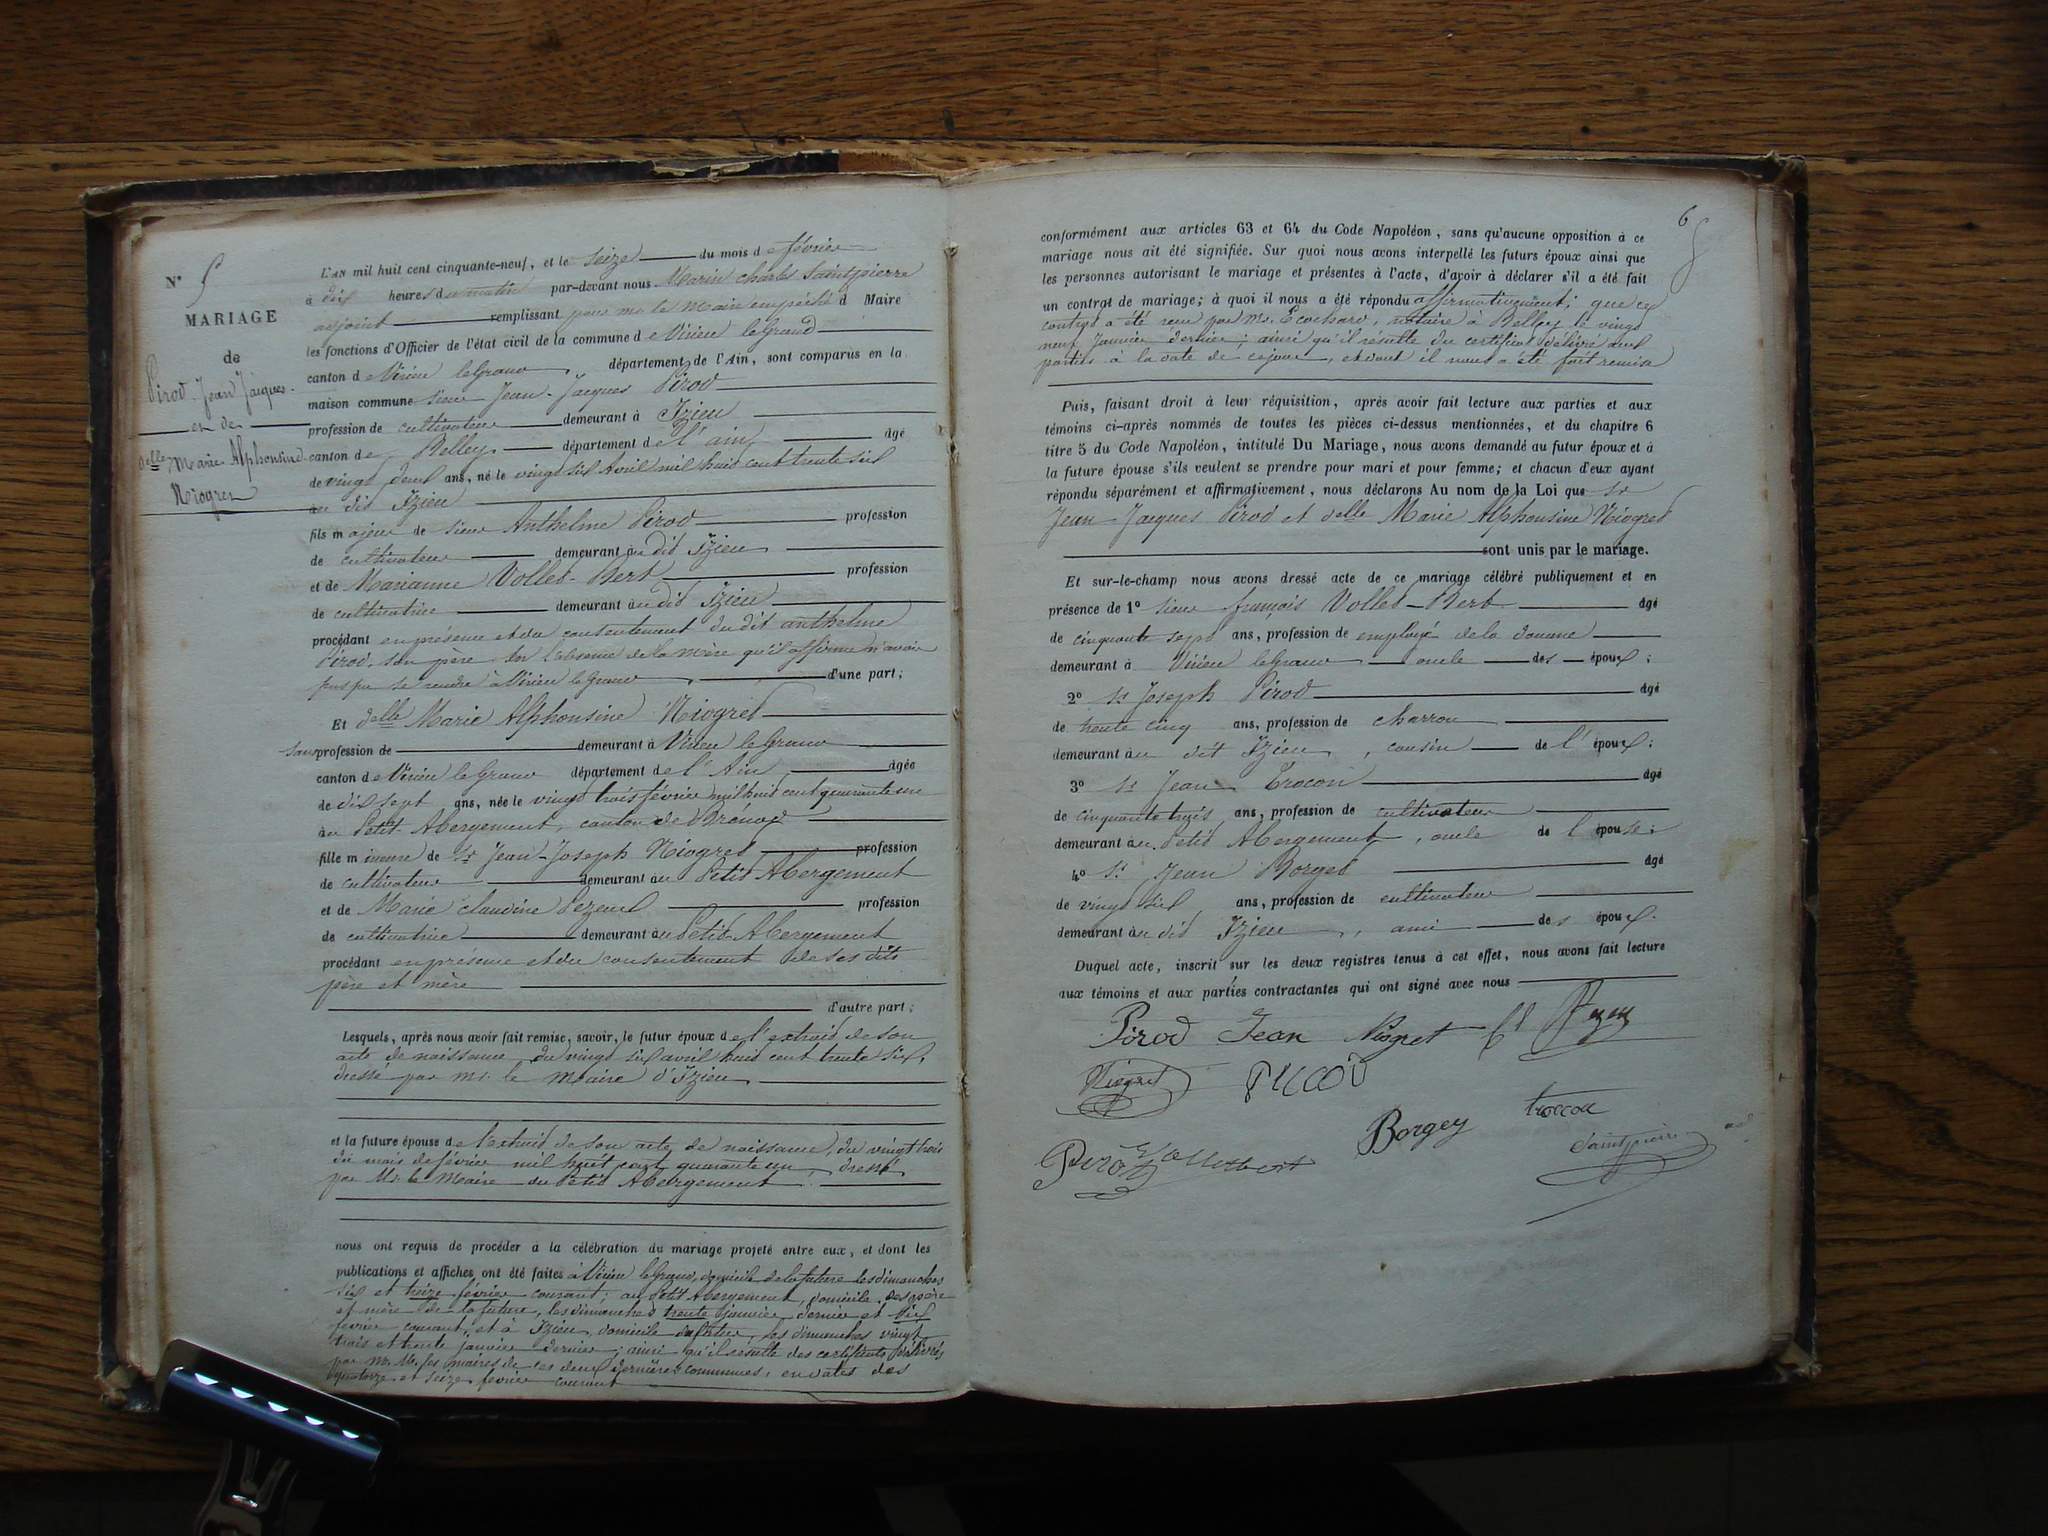 N° 5
MARIAGE
de
Pirod Jean Jacques
et de
delle Marie Alphonsine
Niogret
L'AN mil huit cent cinquante-neuf, et le seize du mois de février
à dix heures du matin par-devant nous Marin Charles Saintpierre
adjoint remplissant pour mr le Maire empêché d Maire
les fonctions d'Officier de l'état civil de la commune de Virieu le Grand
canton de Virieu le Grand, département de l'Ain, sont comparus en la
maison commune sieur Jean-Jacques Pirod
profession de cultivateur demeurant à Izieu
canton de Belley département de l'ain âgé
de vingt deux ans, né le vingt six Avril mil huit cent trente six
au dit Izieu
fils majeur de sieur Anthelme Pirod profession
de cultivateur demeurant au dit Izieu
et de Marianne Vollet-Bert profession
de cultivatrice demeurant au dit Izieu
procédant en présence et du consentement du dit anthelme
Pirod, son père, sur l'absence de la mère qu'il affirme n'avoir
pas pu se rendre à Virieu le Grand d'une part;
Et delle Marie Alphonsine Niogret
sans profession de demeurant à Virieu le Grand
canton de Virieu le Grand département de l'Ain, âgée
de dix sept ans, née le vingt trois février mil huit cent quarante un
au Petit Abergement, canton de Brénod
fille mineure de sr Jean-Joseph Niogret profession
de cultivateur demeurant au Petit Abergement
et de Marie Claudine Pezeul profession
de cultivatrice demeurant au Petit Abergement
procédant en présence et du consentement de ses dits
père et mère
d'autre part;
Lesquels, après nous avoir fait remise, savoir, le futur époux de l'extrait de son
acte de naissance, du vingt six avril huit cent trente six,
dressé par mr. le Maire d'Izieu
et la future épouse de l'extrait de son acte de naissance, du vingt trois
du mois de février mil huit cent quarante un dressé
par Mr le Maire du Petit Abergement
nous ont requis de procéder à la célébration du mariage projeté entre eux, et dont les
publications et affiches ont été faites à Virieu le Grand, domicile de la future les dimanches
six et treize février courant; au Petit Abergement, domicile des père
et mère de la future, les dimanches trente janvier dernier et six
février courant, et à Izieu, domicile du futur, les dimanches vingt
trois et trente janvier dernier; ainsi qu'il résulte des certificats délivrés
par MM. les maires de ces deux dernières communes, en dates des
quatorze et seize février courant
6
conformément aux articles 63 et 64 du Code Napoléon, sans qu'aucune opposition à ce
mariage nous ait été signifiée. Sur quoi nous avons interpellé les futurs époux ainsi que
les personnes autorisant le mariage et présentes à l'acte, d'avoir à déclarer s'il a été fait
un contrat de mariage; à quoi il nous a été répondu affirmativement; que ce
contrat a été reçu par Me. Ecochard, notaire à Belley le vingt
neuf Janvier dernier; ainsi qu'il résulte du certificat délivré aux
parties à la date de ce jour, et dont il nous a été fait remise
Puis, faisant droit à leur réquisition, après avoir fait lecture aux parties et aux
témoins ci-après nommés de toutes les pièces ci-dessus mentionnées, et du chapitre 6
titre 5 du Code Napoléon, intitulé Du Mariage, nous avons demandé au futur époux et à
la future épouse s'ils veulent se prendre pour mari et pour femme; et chacun d'eux ayant
répondu séparément et affirmativement, nous déclarons Au nom de la Loi que sr
Jean-Jacques Pirod et delle Marie Alphonsine Niogret
sont unis par le mariage.
Et sur-le-champ nous avons dressé acte de ce mariage célébré publiquement et en
présence de 1° sieur françois Vollet-Bert âgé
de cinquante sept ans, profession de employé de la douane
demeurant à Virieu le Grand oncle des époux;
2° sr Joseph Pirod âgé
de trente cinq ans, profession de charron
demeurant au dit Izieu, cousin de l'époux;
3° sr Jean Trocon âgé
de cinquante trois ans, profession de cultivateur
demeurant au Petit Abergement, oncle de l'épouse;
4° sr Jean Borget âgé
de vingt six ans, profession de cultivateur
demeurant au dit Izieu, ami des époux.
Duquel acte, inscrit sur les deux registres tenus à cet effet, nous avons fait lecture
aux témoins et aux parties contractantes qui ont signé avec nous
Pirod Jean Niogret
Niogret
Borgey troccon
Pirod Volletbert Saintpierre